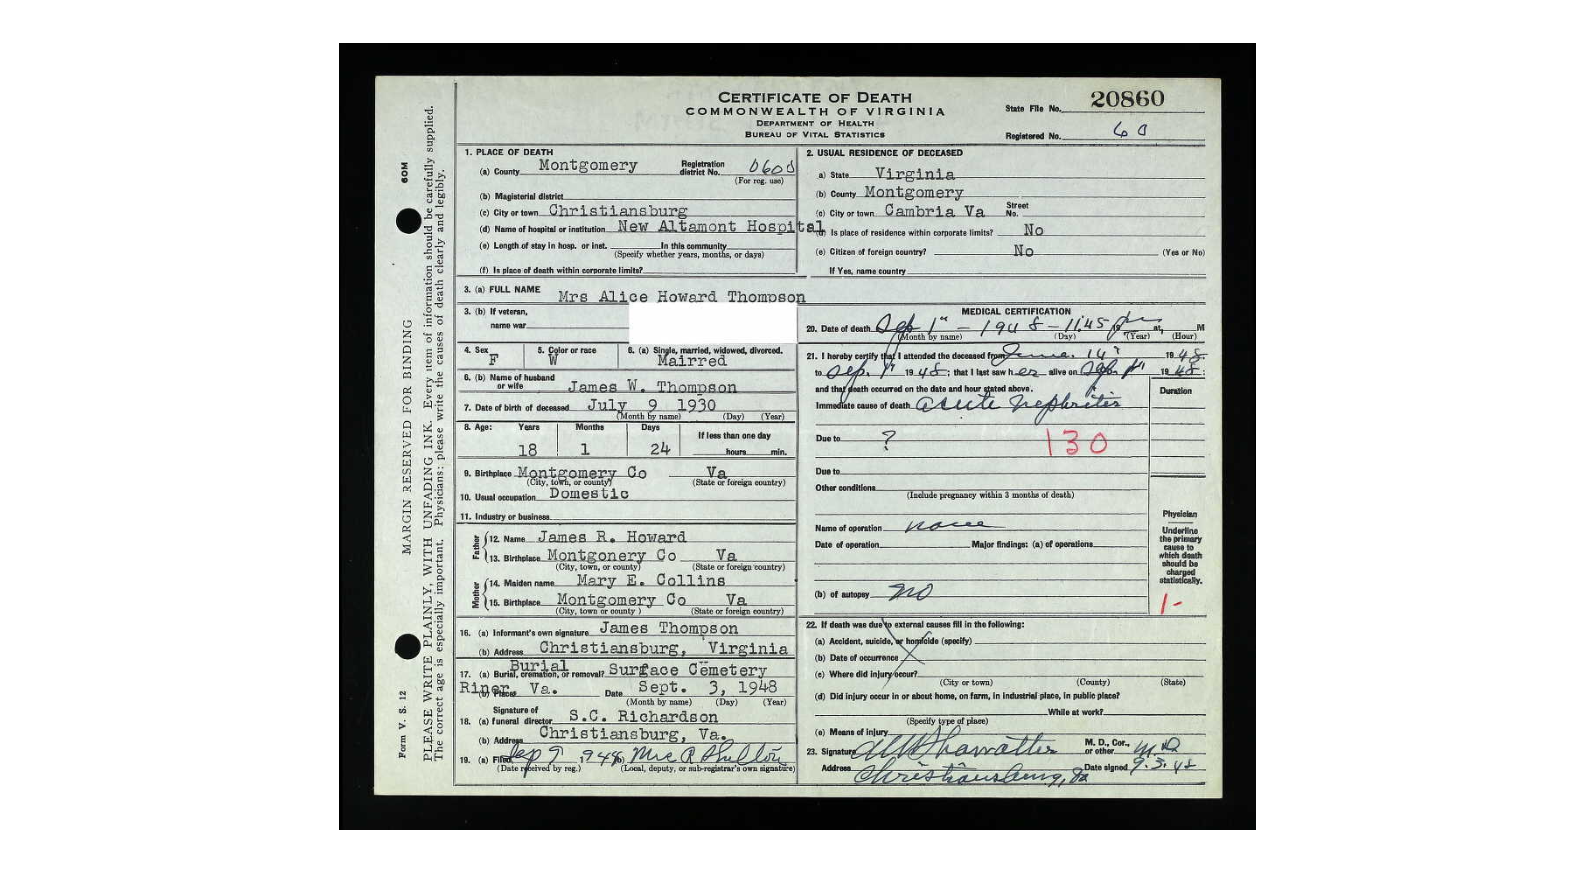 CERTIFICATE OF DEATH
COMMONWEALTH OF VIRGINIA
DEPARTMENT OF HEALTH
BUREAU OF VITAL STATISTICS
State File No. 20860
Registered No. 60
60M
MARGIN RESERVED FOR BINDING
Form V. S. 12
PLEASE WRITE PLAINLY, WITH UNFADING INK. Every item of information should be carefully supplied.
The correct age is especially important. Physicians: please write the causes of death clearly and legibly.
1. PLACE OF DEATH
(a) County Montgomery Registration district No. 0600
(For reg. use)
(b) Magisterial district
(c) City or town Christiansburg
(d) Name of hospital or institution New Altamont Hospital
(e) Length of stay in hosp. or inst. In this community
(Specify whether years, months, or days)
(f) Is place of death within corporate limits?
2. USUAL RESIDENCE OF DECEASED
a) State Virginia
(b) County Montgomery
(c) City or town Cambria Va Street No.
(d) Is place of residence within corporate limits? No
(e) Citizen of foreign country? No (Yes or No)
If Yes, name country
3. (a) FULL NAME Mrs Alice Howard Thompson
3. (b) If veteran,
name war
4. Sex F 5. Color or race W 6. (a) Single, married, widowed, divorced. Mairred
6. (b) Name of husband or wife James W. Thompson
7. Date of birth of deceased July 9 1930
(Month by name) (Day) (Year)
8. Age: Years Months Days If less than one day
18 1 24 hours min.
9. Birthplace Montgomery Co Va
(City, town, or county) (State or foreign country)
10. Usual occupation Domestic
11. Industry or business
Father
12. Name James R. Howard
13. Birthplace Montgonery Co Va
(City, town, or county) (State or foreign country)
Mother
14. Maiden name Mary E. Collins
15. Birthplace Montgomery Co Va
(City, town or county) (State or foreign country)
16. (a) Informant's own signature James Thompson
(b) Address Christiansburg, Virginia
17. (a) Burial, cremation, or removal? Burial Surface Cemetery
(b) Place Riner, Va. Date Sept. 3, 1948
(Month by name) (Day) (Year)
18. (a) Signature of funeral director S.C. Richardson
(b) Address Christiansburg, Va.
19. (a) Filed Sep 9 1948 (b) Mrs R
(Date received by reg.) (Local, deputy, or sub-registrar's own signature)
MEDICAL CERTIFICATION
20. Date of death Sep 1st - 1948 - 11:45 pm at, M
(Month by name) (Day) (Year) (Hour)
21. I hereby certify that I attended the deceased from June 14 1948
to Sep. 1st 1948; that I last saw her alive on Sep 1st 1948;
and that death occurred on the date and hour stated above.
Duration
Immediate cause of death acute nephritis
Due to ? 130
Due to
Other conditions
(Include pregnancy within 3 months of death)
Name of operation none
Date of operation Major findings: (a) of operations
(b) of autopsy no
Physician
Underline
the primary
cause to
which death
should be
charged
statistically.
1-
22. If death was due to external causes fill in the following:
(a) Accident, suicide, or homicide (specify)
(b) Date of occurrence
(c) Where did injury occur?
(City or town) (County) (State)
(d) Did injury occur in or about home, on farm, in industrial place, in public place?
While at work?
(Specify type of place)
(e) Means of injury
23. Signature M. D., Cor., or other M D
Address Christiansburg, Va Date signed 9.3.48